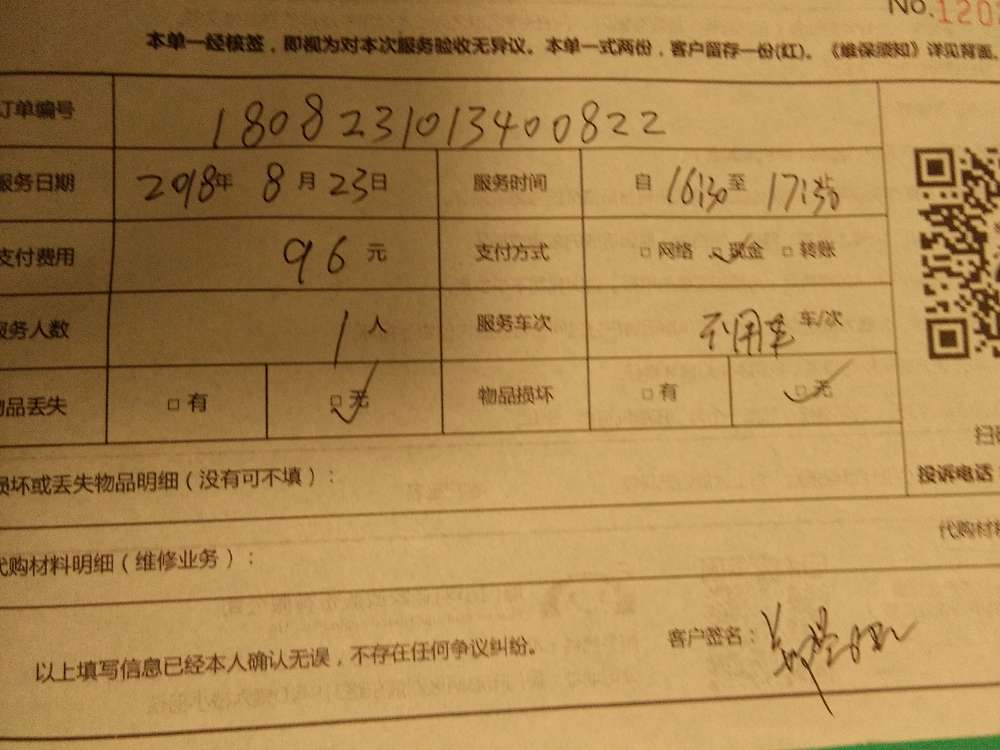 No.120
本单一经核签，即视为对本次服务验收无异议。本单一式两份，客户留存一份(红)。《维保须知》详见背面。
订单编号 1808231013400822
服务日期 2018年 8月23日 服务时间 自 16:30 至 17:30
支付费用 96元 支付方式 □网络 ☑现金 □转账
服务人数 1人 服务车次 不用车 车/次
物品丢失 □有 ☑无 物品损坏 □有 ☑无
损坏或丢失物品明细（没有可不填）：
投诉电话
代购材料明细（维修业务）： 代购材料
以上填写信息已经本人确认无误，不存在任何争议纠纷。 客户签名：